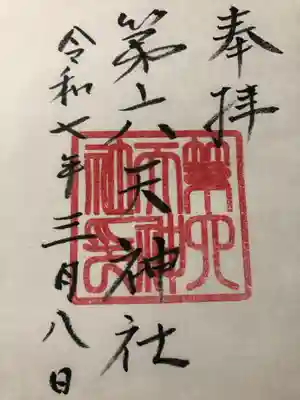 奉拝
第六天神社
令和七年三月八日
第六
天神
社印